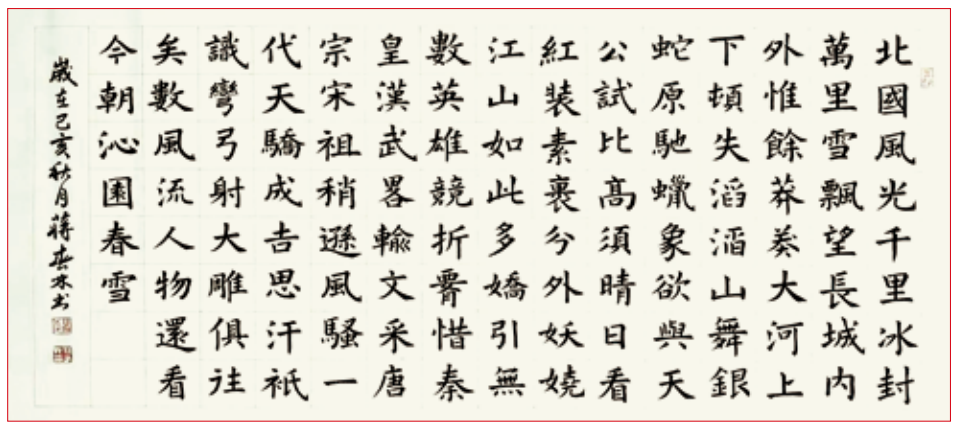 北國風光千里冰封
萬里雪飄望長城內
外惟餘莽莽大河上
下頓失滔滔山舞銀
蛇原馳蠟象欲與天
公試比高須晴日看
紅裝素裹分外妖嬈
江山如此多嬌引無
數英雄競折腰惜秦
皇漢武畧輸文采唐
宗宋祖稍遜風騷一
代天驕成吉思汗祇
識彎弓射大雕俱往
矣數風流人物還看
今朝沁園春雪
歲在己亥秋月蔣春木书